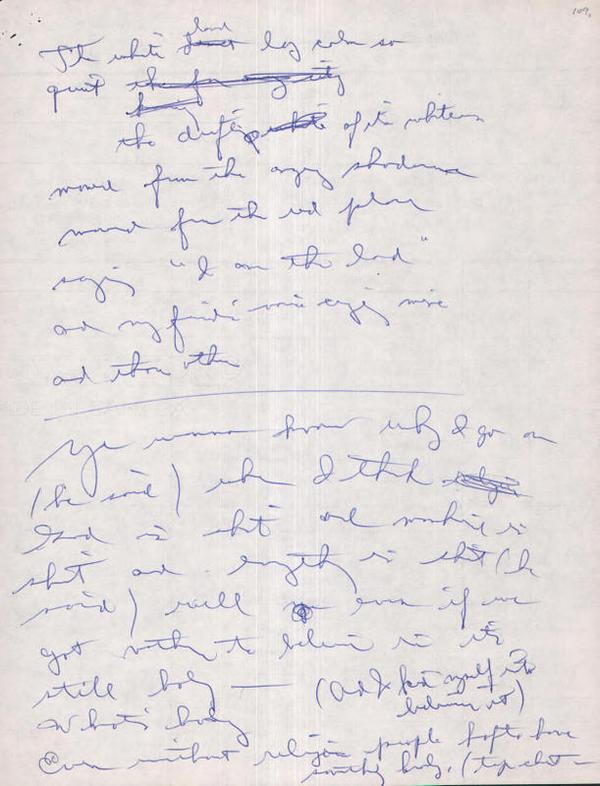 109.
The white cloud lay calm so
quiet
the drifting of its whiteness
moved from the angry shadows
moved from the red place
saying "I am the Lord"
and my friend's voice crying more
and then other
Ya wanna know why I go on
(he said) when I think
God is shit and mankind is
shit and everything is shit (he
said) well even if we
got nothing to believe in it's
still holy — (And I kid myself into
believing it)
What's holy
Even without religion people hafta have
something holy. (